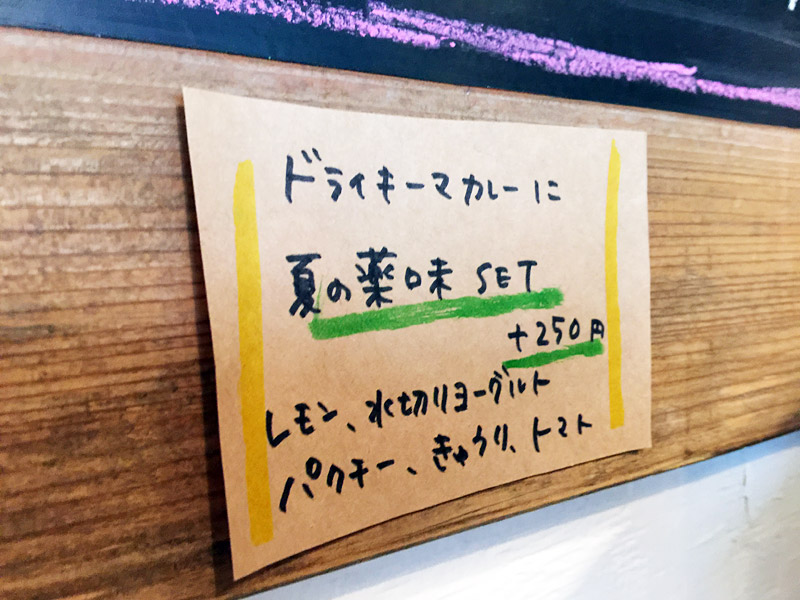 ドライキーマカレーに
夏の薬味 SET
+250円
レモン、水切りヨーグルト
パクチー、きゅうり、トマト